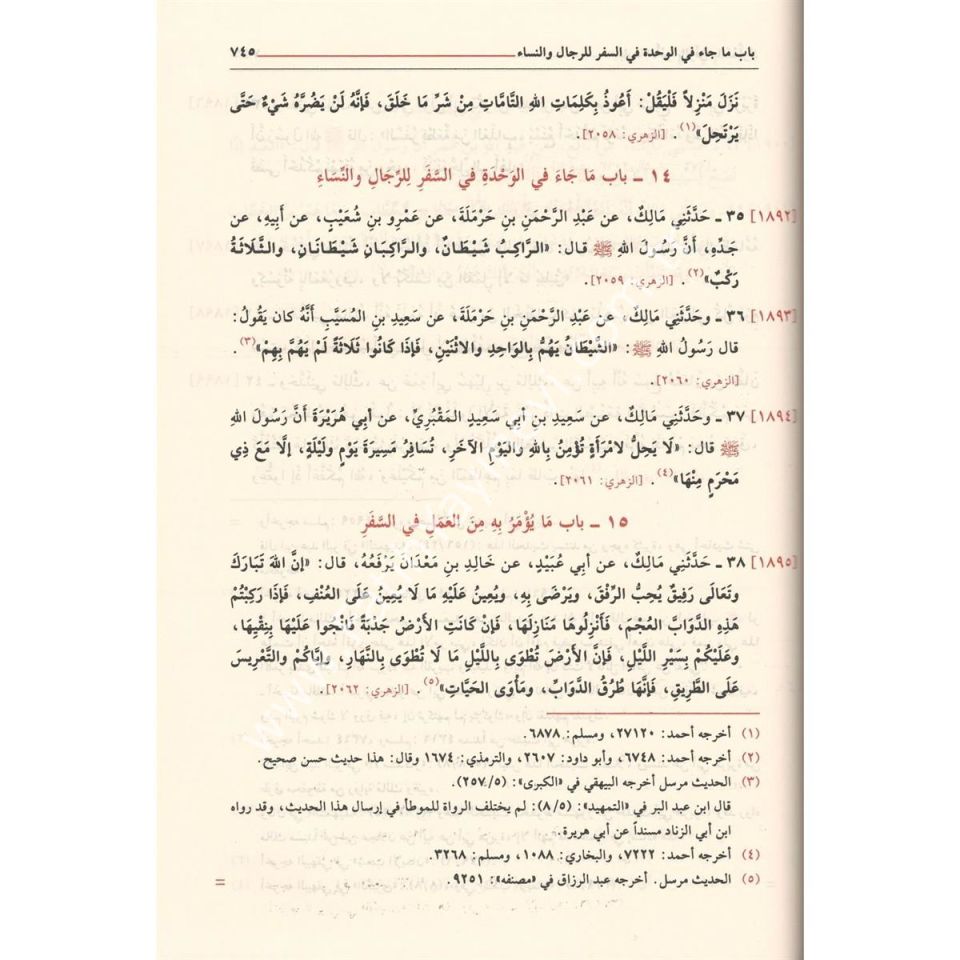 باب ما جاء في الوحدة في السفر للرجال والنساء ٧٤٥
نَزَلَ مَنْزِلاً فَلْيَقُلْ: أَعُوذُ بِكَلِمَاتِ اللهِ التَّامَّاتِ مِنْ شَرِّ مَا خَلَقَ، فَإِنَّهُ لَنْ يَضُرَّهُ شَيْءٌ حَتَّى
يَرْتَحِلَ»(١). [الزهري: ٢٠٥٨].
١٤ ـ باب مَا جَاءَ في الوَحْدَةِ في السَّفَرِ لِلرِّجَالِ والنِّسَاءِ
[١٨٩٢] ٣٥ ـ حَدَّثَنِي مَالِكٌ، عن عَبْدِ الرَّحْمَنِ بنِ حَرْمَلَةَ، عن عَمْرِو بنِ شُعَيْبٍ، عن أَبِيهِ، عن
جَدِّهِ، أَنَّ رَسُولَ اللهِ ﷺ قال: «الرَّاكِبُ شَيْطَانٌ، والرَّاكِبَانِ شَيْطَانَانِ، والثَّلَاثَةُ
رَكْبٌ»(٢). [الزهري: ٢٠٥٩].
[١٨٩٣] ٣٦ ـ وحَدَّثَنِي مَالِكٌ، عن عَبْدِ الرَّحْمَنِ بنِ حَرْمَلَةَ، عن سَعِيدِ بنِ المُسَيَّبِ أَنَّهُ كان يَقُولُ:
قال رَسُولُ اللهِ ﷺ: «الشَّيْطَانُ يَهُمُّ بِالواحِدِ والاثْنَيْنِ، فَإِذَا كَانُوا ثَلَاثَةً لَمْ يَهُمَّ بِهِمْ»(٣).
[الزهري: ٢٠٦٠].
[١٨٩٤] ٣٧ ـ وحَدَّثَنِي مَالِكٌ، عن سَعِيدِ بنِ أبي سَعِيدٍ المَقْبُرِيِّ، عن أبي هُرَيْرَةَ أَنَّ رَسُولَ اللهِ
ﷺ قال: «لَا يَحِلُّ لامْرَأَةٍ تُؤْمِنُ بِاللهِ واليَوْمِ الآخَرِ، تُسَافِرُ مَسِيرَةَ يَوْمٍ ولَيْلَةٍ، إلَّا مَعَ ذِي
مَحْرَمٍ مِنْهَا»(٤). [الزهري: ٢٠٦١].
١٥ ـ باب مَا يُؤْمَرُ بِهِ مِنَ العَمَلِ في السَّفَرِ
[١٨٩٥] ٣٨ ـ حَدَّثَنِي مَالِكٌ، عن أبي عُبَيْدٍ، عن خَالِدِ بنِ مَعْدَانَ يَرْفَعُهُ، قال: «إِنَّ اللهَ تَبَارَكَ
وتَعَالَى رَفِيقٌ يُحِبُّ الرِّفْقَ، ويَرْضَى بِهِ، ويُعِينُ عَلَيْهِ مَا لَا يُعِينُ عَلَى العُنْفِ، فَإِذَا رَكِبْتُمْ
هَذِهِ الدَّوَابَّ العُجْمَ، فَأَنْزِلُوهَا مَنَازِلَهَا، فَإِنْ كَانَتِ الأَرْضُ جَدْبَةً فَانْجُوا عَلَيْهَا بِنِقْيِهَا،
وعَلَيْكُمْ بِسَيْرِ اللَّيْلِ، فَإِنَّ الأَرْضَ تُطْوَى بِاللَّيْلِ مَا لَا تُطْوَى بِالنَّهَارِ، وإِيَّاكُمْ والتَّعْرِيسَ
عَلَى الطَّرِيقِ، فَإِنَّهَا طُرُقُ الدَّوَابِّ، ومَأْوَى الحَيَّاتِ»(٥). [الزهري: ٢٠٦٢].
(١) أخرجه أحمد: ٢٧١٢٠، ومسلم: ٦٨٧٨.
(٢) أخرجه أحمد: ٦٧٤٨، وأبو داود: ٢٦٠٧، والترمذي: ١٦٧٤ وقال: هذا حديث حسن صحيح.
(٣) الحديث مرسل أخرجه البيهقي في «الكبرى»: (٢٥٧/٥).
قال ابن عبد البر في «التمهيد»: (٨/٥): لم يختلف الرواة للموطأ في إرسال هذا الحديث، وقد رواه
ابن أبي الزناد مسنداً عن أبي هريرة.
(٤) أخرجه أحمد: ٧٢٢٢، والبخاري: ١٠٨٨، ومسلم: ٣٢٦٨.
(٥) الحديث مرسل. أخرجه عبد الرزاق في «مصنفه»: ٩٢٥١. =